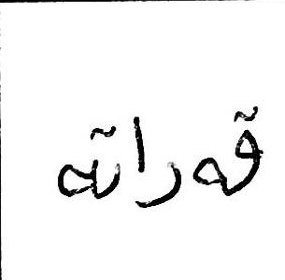 قەراتە